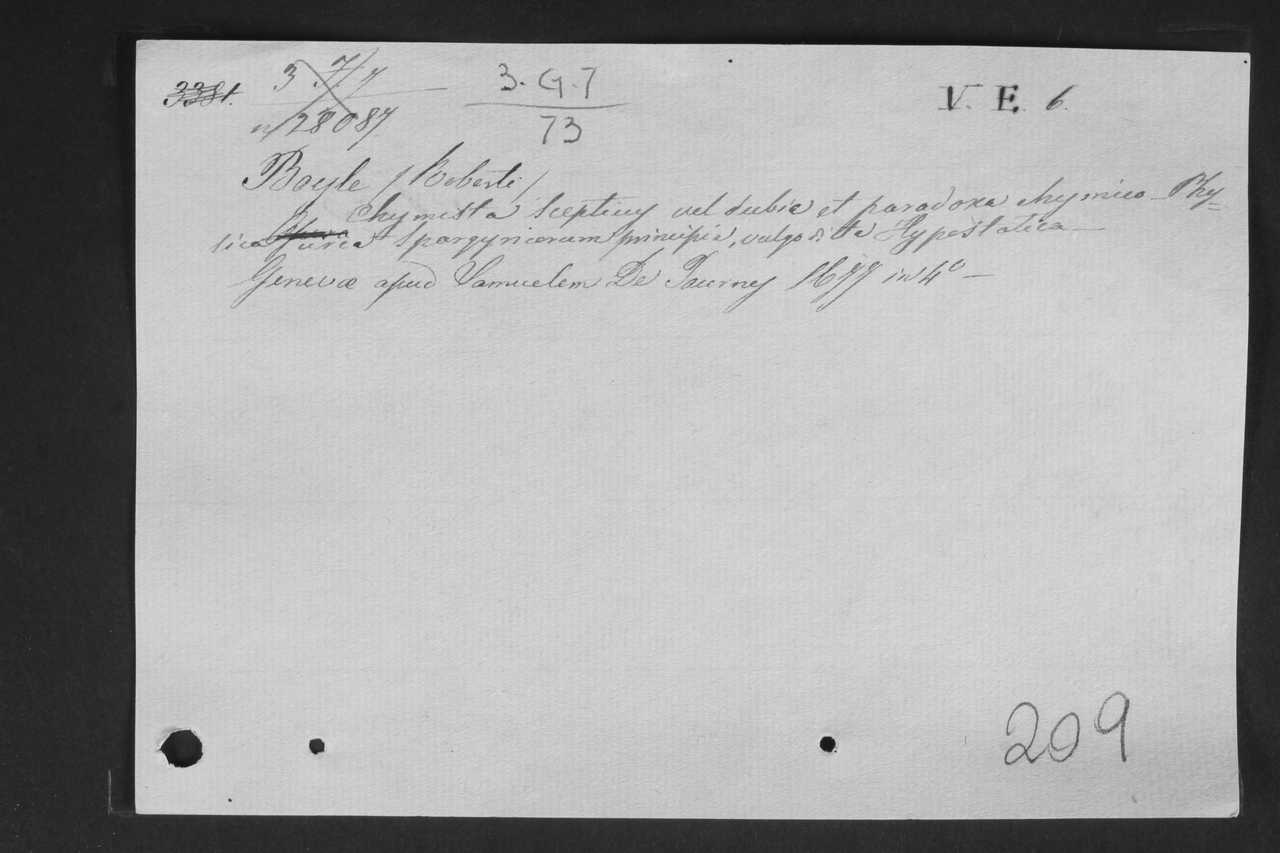 3381.
3 7/7
nº 28087
3. G. 7
73
V. E. 6.
Boyle / Roberti /
Chymista Scepticus vel dubia et paradoxa chymico-Phy=
sica circa Spargyricorum principia, vulgo dicta Hypostatica —
Genevæ apud Samuelem De Tournes 1677 in 4º —
209